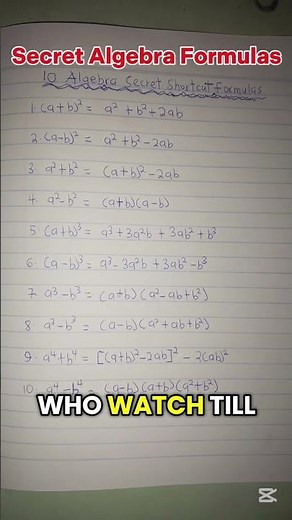 Secret Algebra Formulas
10 Algebra Secret Shortcut Formulas
1. (a+b)² = a² + b² + 2ab
2. (a-b)² = a² + b² - 2ab
3. a² + b² = (a+b)² - 2ab
4. a² - b² = (a+b)(a-b)
5. (a+b)³ = a³ + 3a²b + 3ab² + b³
6. (a-b)³ = a³ - 3a²b + 3ab² - b³
7. a³ - b³ = (a+b)(a² - ab + b²)
8. a³ - b³ = (a-b)(a² + ab + b²)
9. a⁴ + b⁴ = [(a+b)² - 2ab]² - 2(ab)²
10. a⁴ - b⁴ = (a-b)(a+b)(a² + b²)
WHO WATCH TILL